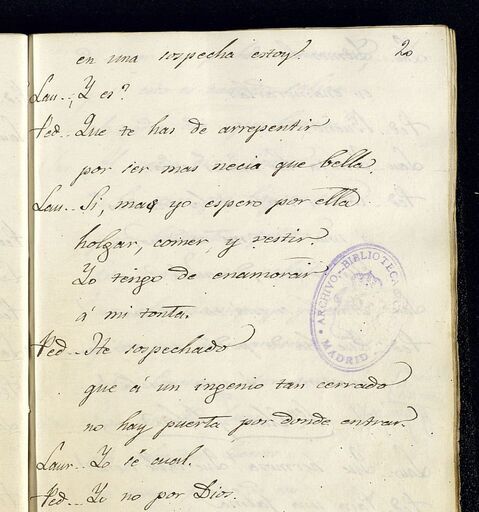 20
en una sospecha estoy.
Lau.. ¿Y es?
Ped.. Que te has de arrepentir
por ser mas necia que bella.
Lau.. Si, mas yo espero por ella
holgar, comer, y vestir.
Yo tengo de enamorar
á mi tonta.
Ped.. He sospechado
que á un ingenio tan cerrado
no hay puerta por donde entrar.
Laur.. Yo sé cual.
Ped.. Yo no por Dios.
ARCHIVO-BIBLIOTECA
MADRID